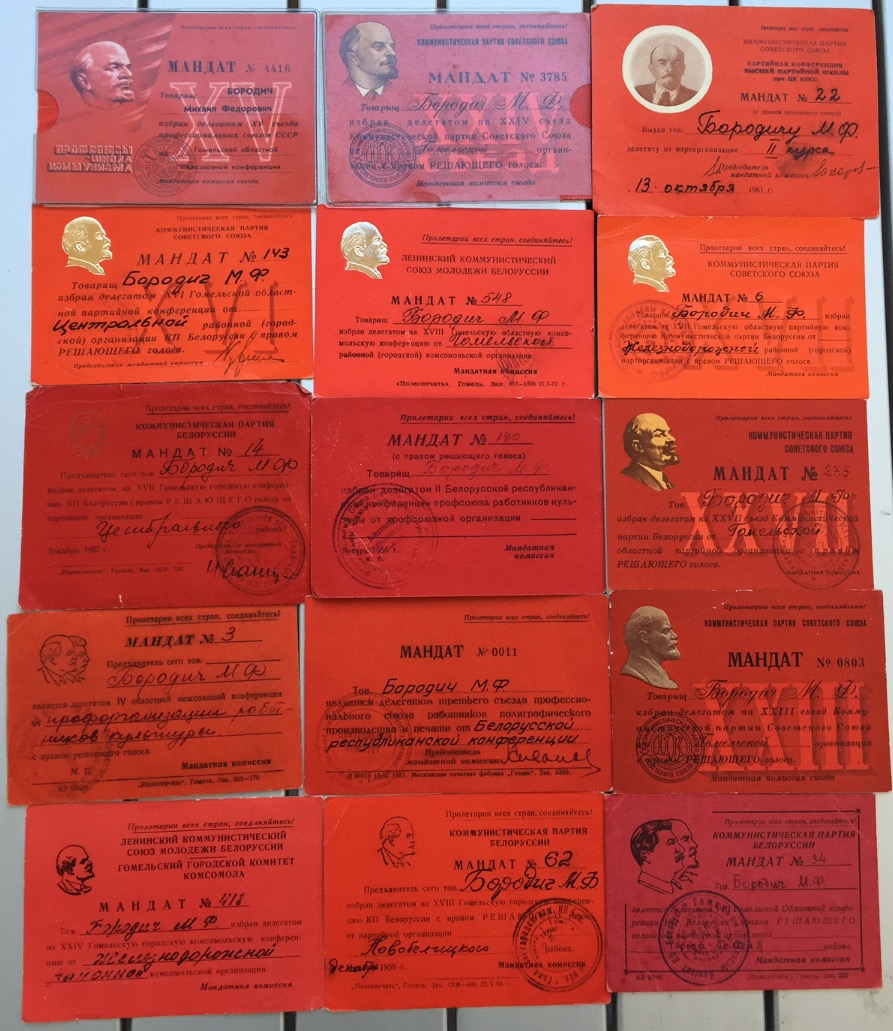 Пролетарии всех стран, соединяйтесь!
МАНДАТ № 4416
Товарищ БОРОДИЧ
Михаил Федорович
избран делегатом XV съезда
профессиональных союзов СССР
от Гомельской областной
межсоюзной конференции
Мандатная комиссия съезда
XV
ПРОФСОЮЗЫ
-ШКОЛА
КОММУНИЗМА
Пролетарии всех стран, соединяйтесь!
КОММУНИСТИЧЕСКАЯ ПАРТИЯ СОВЕТСКОГО СОЮЗА
МАНДАТ № 3785
Товарищ Бородич М. Ф.
избран делегатом на XXIV съезд
Коммунистической партии Советского Союза
от Гомельской органи-
зации с правом РЕШАЮЩЕГО голоса.
Мандатная комиссия съезда
Пролетарии всех стран, соединяйтесь!
КОММУНИСТИЧЕСКАЯ ПАРТИЯ
СОВЕТСКОГО СОЮЗА
ПАРТИЙНАЯ КОНФЕРЕНЦИЯ
ВЫСШЕЙ ПАРТИЙНОЙ ШКОЛЫ
при ЦК КПСС
МАНДАТ № 22
(с правом решающего голоса)
Выдан тов. Бородичу М. Ф.
делегату от парторганизации II курса
Председатель
мандатной комиссии
13 октября 1961 г.
Пролетарии всех стран, соединяйтесь!
КОММУНИСТИЧЕСКАЯ ПАРТИЯ
СОВЕТСКОГО СОЮЗА
МАНДАТ № 143
Товарищ Бородич М. Ф.
избран делегатом XVI Гомельской област-
ной партийной конференции от
Центральной районной (город-
ской) организации КП Белоруссии с правом
РЕШАЮЩЕГО голоса.
Председатель мандатной комиссии
XVI
Пролетарии всех стран, соединяйтесь!
ЛЕНИНСКИЙ КОММУНИСТИЧЕСКИЙ
СОЮЗ МОЛОДЕЖИ БЕЛОРУССИИ
МАНДАТ № 548
Товарищ Бородич М Ф
избран делегатом на XVIII Гомельскую областную комсо-
мольскую конференцию от Гомельской
районной (городской) комсомольской организации.
Мандатная комиссия
«Полеспечать», Гомель. Зак. 27.I-72 г.
Пролетарии всех стран, соединяйтесь!
КОММУНИСТИЧЕСКАЯ ПАРТИЯ
СОВЕТСКОГО СОЮЗА
МАНДАТ № 6
Товарищ Бородич М. Ф. избран
делегатом на XVII Гомельскую областную партийную кон-
ференцию Коммунистической партии Белоруссии от
Железнодорожной районной (городской)
парторганизации с правом РЕШАЮЩЕГО голоса.
Мандатная комиссия
XVII
Пролетарии всех стран, соединяйтесь!
КОММУНИСТИЧЕСКАЯ ПАРТИЯ
БЕЛОРУССИИ
МАНДАТ № 14
Предъявитель сего тов. Бородич М Ф
избран делегатом на XVII Гомельскую городскую конферен-
цию КП Белоруссии с правом РЕШАЮЩЕГО голоса от
партийной организации
Центрального района.
Декабрь 1957 г.
Председатель мандатной
комиссии
Пролетарии всех стран, соединяйтесь!
МАНДАТ № 140
(с правом решающего голоса)
Товарищ Бородич М. Ф.
избран делегатом II Белорусской республикан-
ской конференции профсоюза работников куль-
туры от профсоюзной организации
Январь 1956 г.
Мандатная
комиссия
Пролетарии всех стран, соединяйтесь!
КОММУНИСТИЧЕСКАЯ ПАРТИЯ
СОВЕТСКОГО СОЮЗА
МАНДАТ №
Тов. Бородич М. Ф.
избран делегатом на XXVII съезд Коммунистической
партии Белоруссии от Гомельской
областной партийной организации с правом
РЕШАЮЩЕГО голоса.
МАНДАТНАЯ КОМИССИЯ
XXVII
Пролетарии всех стран, соединяйтесь!
МАНДАТ № 3
Предъявитель сего тов.
Бородич М Ф
является делегатом IV областной межсоюзной конференции
от профорганизации работ-
ников культуры
с правом решающего голоса.
М. П.
Мандатная комиссия
«Полеспечать», Гомель. Зак.
Пролетарии всех стран, соединяйтесь!
МАНДАТ № 0011
Тов. Бородич М. Ф.
является делегатом третьего съезда професcио-
нального союза работников полиграфического
производства и печати от Белорусской
республиканской конференции
Председатель
мандатной комиссии
1951. Московская печатная фабрика „Гознак". Зак.
Пролетарии всех стран, соединяйтесь!
КОММУНИСТИЧЕСКАЯ ПАРТИЯ СОВЕТСКОГО СОЮЗА
МАНДАТ № 0803
Товарищ Бородич М. Ф.
избран делегатом на XXIII съезд Комму-
нистической партии Советского Союза
от Гомельской организации
с правом РЕШАЮЩЕГО голоса.
Мандатная комиссия съезда
XXIII
Пролетарии всех стран, соединяйтесь!
ЛЕНИНСКИЙ КОММУНИСТИЧЕСКИЙ
СОЮЗ МОЛОДЕЖИ БЕЛОРУССИИ
ГОМЕЛЬСКИЙ ГОРОДСКОЙ КОМИТЕТ
КОМСОМОЛА
МАНДАТ № 418
Тов. Бородич М Ф избран делегатом
на XXIV Гомельскую городскую комсомольскую конферен-
цию от Железнодорожной
районной комсомольской организации.
Мандатная комиссия
Пролетарии всех стран, соединяйтесь!
КОММУНИСТИЧЕСКАЯ ПАРТИЯ
БЕЛОРУССИИ
МАНДАТ № 62
Предъявитель сего тов. Бородич М Ф
избран делегатом на XVIII Гомельскую городскую конферен-
цию КП Белоруссии с правом РЕШАЮЩЕГО голоса от
партийной организации
Новобелицкого района.
декабрь 1959 г.
Мандатная комиссия
Пролетарии всех стран, соединяйтесь!
КОММУНИСТИЧЕСКАЯ ПАРТИЯ
БЕЛОРУССИИ
МАНДАТ № 34
Тов. Бородич М. Ф.
является делегатом Гомельской Областной конфе-
ренции Белоруссии с правом РЕШАЮЩЕГО
голоса от партийной организации
города Гомеля района.
Мандатная комиссия